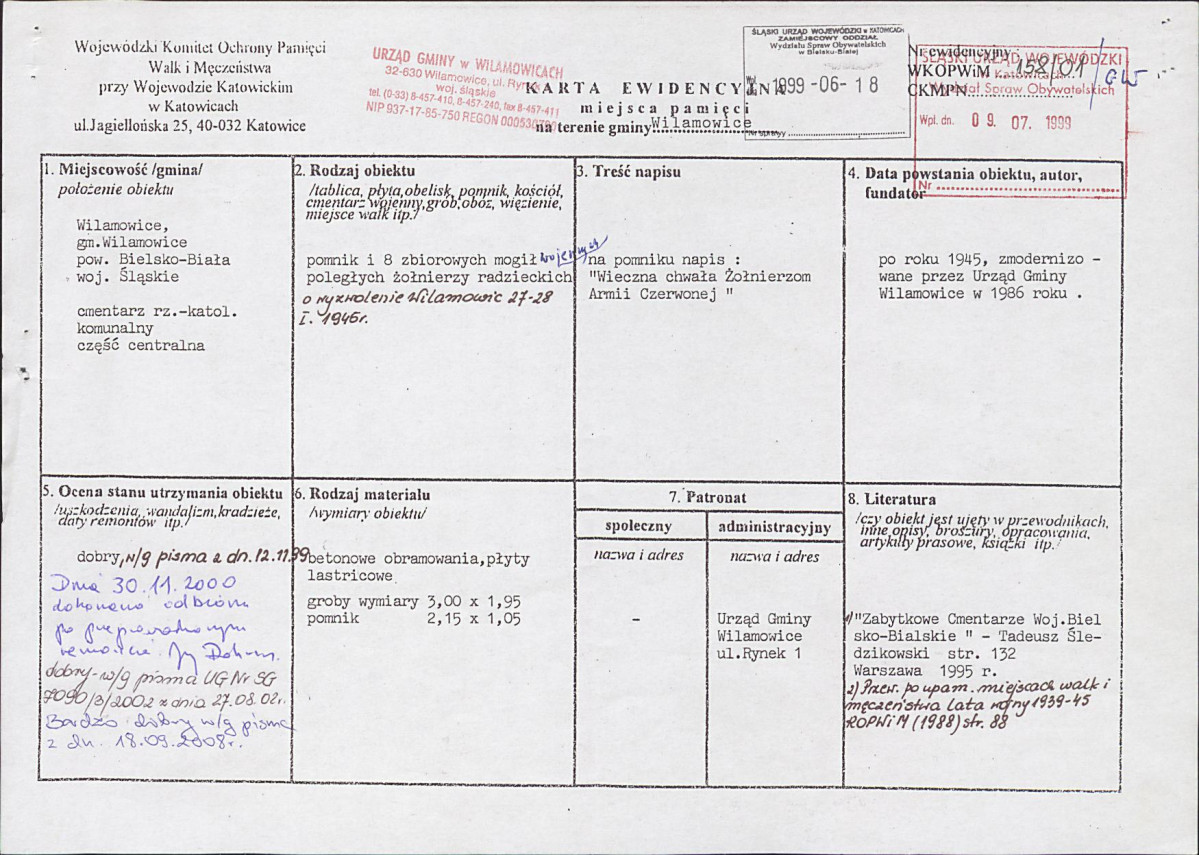 Wojewódzki Komitet Ochrony Pamięci
Walk i Męczeństwa
przy Wojewodzie Katowickim
w Katowicach
ul.Jagiellońska 25, 40-032 Katowice
URZĄD GMINY w WILAMOWICACH
32-630 Wilamowice, ul. Rynek
woj. śląskie
tel. (0-33) 8-457-410, 8-457-240, fax 8-457-411
NIP 937-17-85-750 REGON
KARTA EWIDENCYJNA
miejsca pamięci
na terenie gminy Wilamowice
ŚLĄSKI URZĄD WOJEWÓDZKI w KATOWICACH
ZAMIEJSCOWY ODDZIAŁ
Wydziału Spraw Obywatelskich
w Bielsku-Białej
1999 -06- 18
Nr sprawy
Nr ewidencyjny
WKOPWiM 158/01 / GW
CKMPN
ŚLĄSKI URZĄD WOJEWÓDZKI
w Katowicach
Wydział Spraw Obywatelskich
Wpl. dn. 09. 07. 1999
Nr
1. Miejscowość /gmina/
położenie obiektu
Wilamowice,
gm.Wilamowice
pow. Bielsko-Biała
woj. Śląskie
cmentarz rz.-katol.
komunalny
część centralna
2. Rodzaj obiektu
/tablica, płyta,obelisk, pomnik, kościół,
cmentarz wojenny,grób,obóz, więzienie,
miejsce walk itp./
pomnik i 8 zbiorowych mogił wojennych
poległych żołnierzy radzieckich
o wyzwolenie Wilamowic 27-28
I. 1945r.
3. Treść napisu
na pomniku napis :
"Wieczna chwała Żołnierzom
Armii Czerwonej "
4. Data powstania obiektu, autor,
fundator
po roku 1945, zmodernizo -
wane przez Urząd Gminy
Wilamowice w 1986 roku .
5. Ocena stanu utrzymania obiektu
/uszkodzenia, wandalizm,kradzieże,
daty remontów itp./
dobry, w/g pisma z dn. 12.11.99
Dnia 30.11.2000
dokonano odbioru
po przeprowadzonym
remoncie
dobry - w/g pisma UG Nr SG
7090/3/2002 z dnia 27.08.02r.
Bardzo dobry w/g pisma
z dn. 18.09.2008r.
6. Rodzaj materiału
/wymiary obiektu/
betonowe obramowania,płyty
lastricowe
groby wymiary 3,00 x 1,95
pomnik 2,15 x 1,05
7. Patronat
społeczny
nazwa i adres
-
administracyjny
nazwa i adres
Urząd Gminy
Wilamowice
ul.Rynek 1
8. Literatura
/czy obiekt jest ujęty w przewodnikach,
inne opisy, broszury, opracowania,
artykuły prasowe, książki itp./
1) "Zabytkowe Cmentarze Woj.Biel
sko-Bialskie " - Tadeusz Śle-
dzikowski str. 132
Warszawa 1995 r.
2) Przew. po upam. miejscach walk i
męczeństwa lata wojny 1939-45
ROPWiM (1988) str. 88